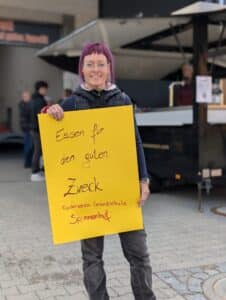 Essen für
den guten
Zweck
Förderverein Grundschule
Sonnenhof